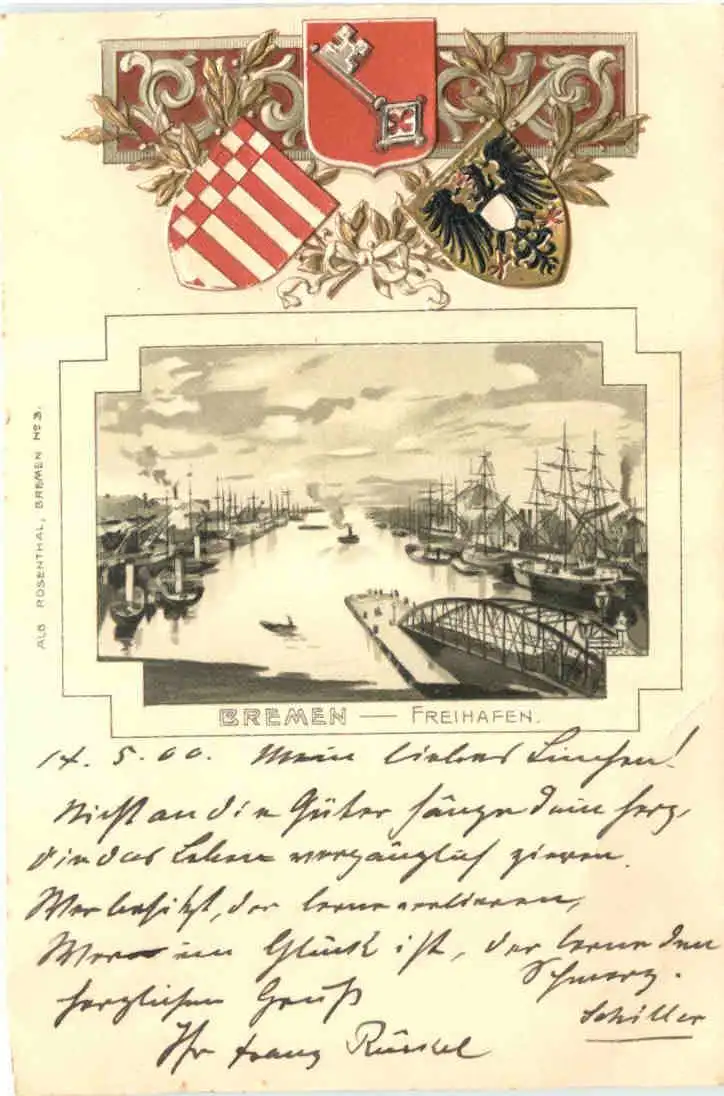 ALB ROSENTHAL, BREMEN No 3.
BREMEN — FREIHAFEN.
14. 5. 00. Mein liebes Linchen!
Nicht an die Güter hänge dein Herz,
die das Leben vergänglich zieren.
Wer besitzt, der lerne verlieren,
Wer im Glück ist, der lerne den
Schmerz.
Schiller
herzlichen Gruß
Ihr Franz